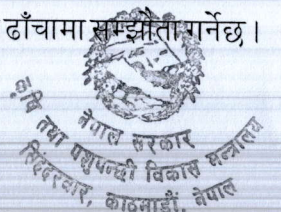 ढाँचामा सम्झौता गर्नेछ।
नेपाल सरकार
कृषि तथा पशुपन्छी विकास मन्त्रालय
सिंहदरबार, काठमाडौं, नेपाल